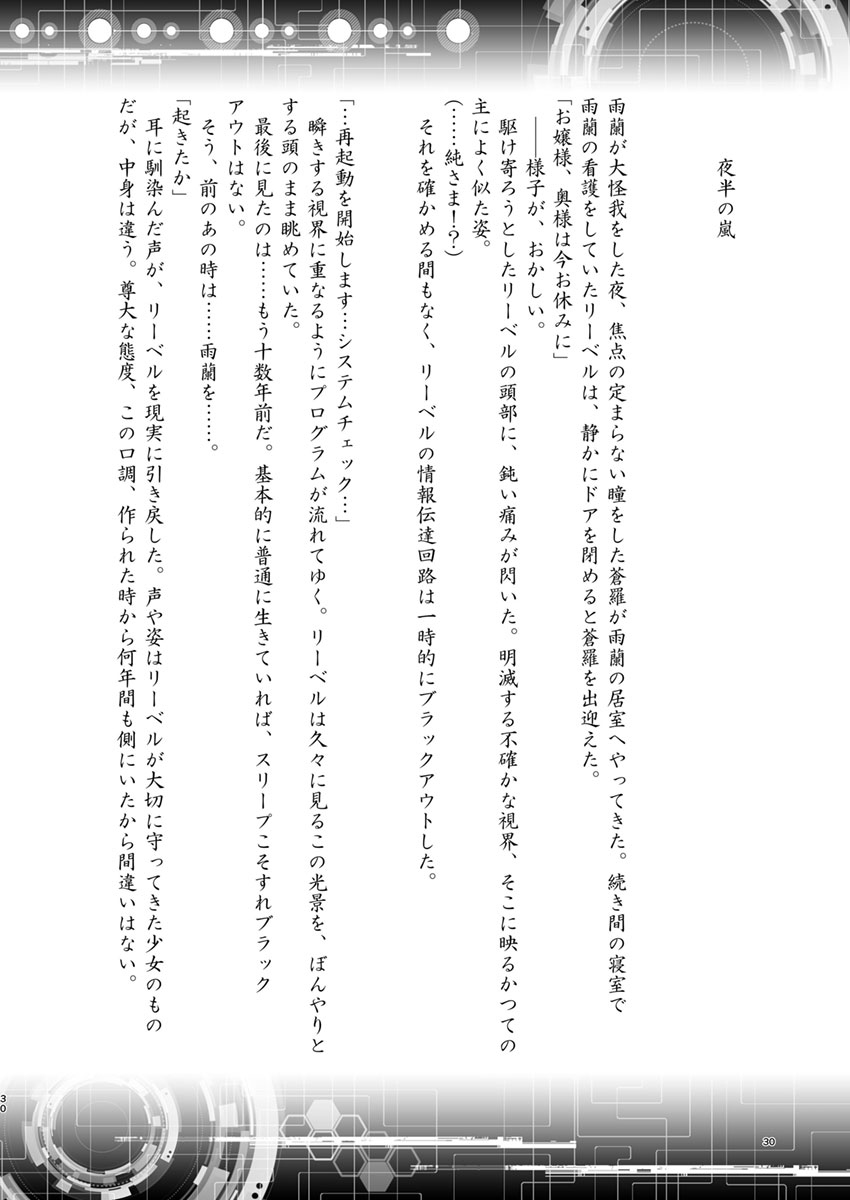 夜半の嵐
雨蘭が大怪我をした夜、焦点の定まらない瞳をした蒼羅が雨蘭の居室へやってきた。続き間の寝室で
雨蘭の看護をしていたリーベルは、静かにドアを閉めると蒼羅を出迎えた。
「お嬢様、奥様は今お休みに」
――様子が、おかしい。
駆け寄ろうとしたリーベルの頭部に、鈍い痛みが閃いた。明滅する不確かな視界、そこに映るかつての
主によく似た姿。
(……純さま!?)
それを確かめる間もなく、リーベルの情報伝達回路は一時的にブラックアウトした。
「…再起動を開始します…システムチェック…」
瞬きする視界に重なるようにプログラムが流れてゆく。リーベルは久々に見るこの光景を、ぼんやりと
する頭のまま眺めていた。
最後に見たのは……もう十数年前だ。基本的に普通に生きていれば、スリープこそすれブラック
アウトはない。
そう、前のあの時は……雨蘭を……。
「起きたか」
耳に馴染んだ声が、リーベルを現実に引き戻した。声や姿はリーベルが大切に守ってきた少女のもの
だが、中身は違う。尊大な態度、この口調、作られた時から何年間も側にいたから間違いはない。
30
30